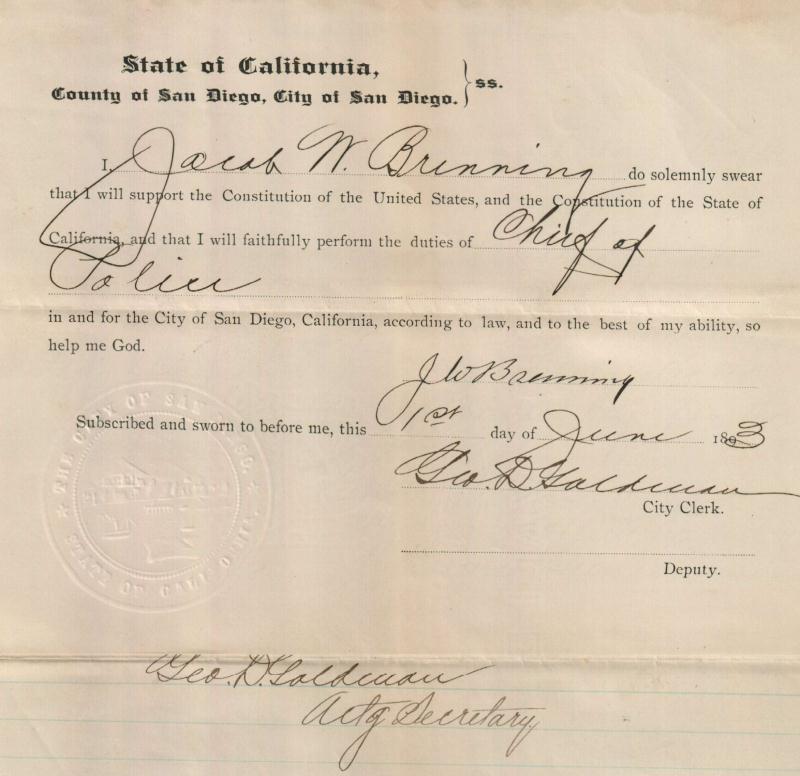 State of California,
County of San Diego, City of San Diego. } ss.
I, Jacob W. Brenning do solemnly swear
that I will support the Constitution of the United States, and the Constitution of the State of
California, and that I will faithfully perform the duties of Chief of
Police
in and for the City of San Diego, California, according to law, and to the best of my ability, so
help me God.
J W Brenning
Subscribed and sworn to before me, this 1st day of June 1893
Geo. D. Goldman
City Clerk.
Deputy.
THE CITY OF SAN DIEGO.
STATE OF CALIFORNIA.
Geo. D. Goldman
Actg Secretary